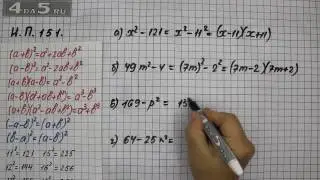 4DA5.RU
И.П.151.
(a+b)²=a²+2ab+b²
(a-b)²=a²-2ab+b²
(a+b)(a-b)=a²-b²
(a-b)(a²+ab+b²)=a³-b³
(a+b)(a²-ab+b²)=a³+b³
(-a-b)²=(a+b)²
(b-a)²=(a-b)²
11²=121 15²=225
12²=144 16²=256
а) x²-121=x²-11²=(x-11)(x+11)
б) 49m²-4=(7m)²-2²=(7m-2)(7m+2)
в) 169-p²=13
г) 64-25n²=